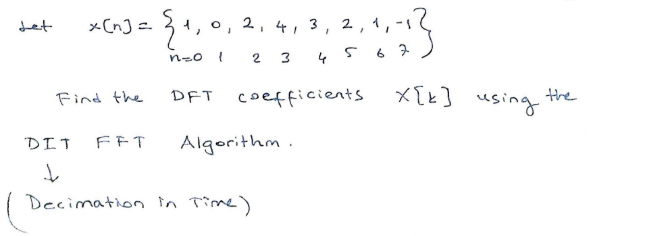 Let x[n] = { 1, 0, 2, 4, 3, 2, 1, -1 }
n=0 1 2 3 4 5 6 7
Find the DFT coefficients X[k] using the
DIT FFT Algorithm.
↓
(Decimation in Time)